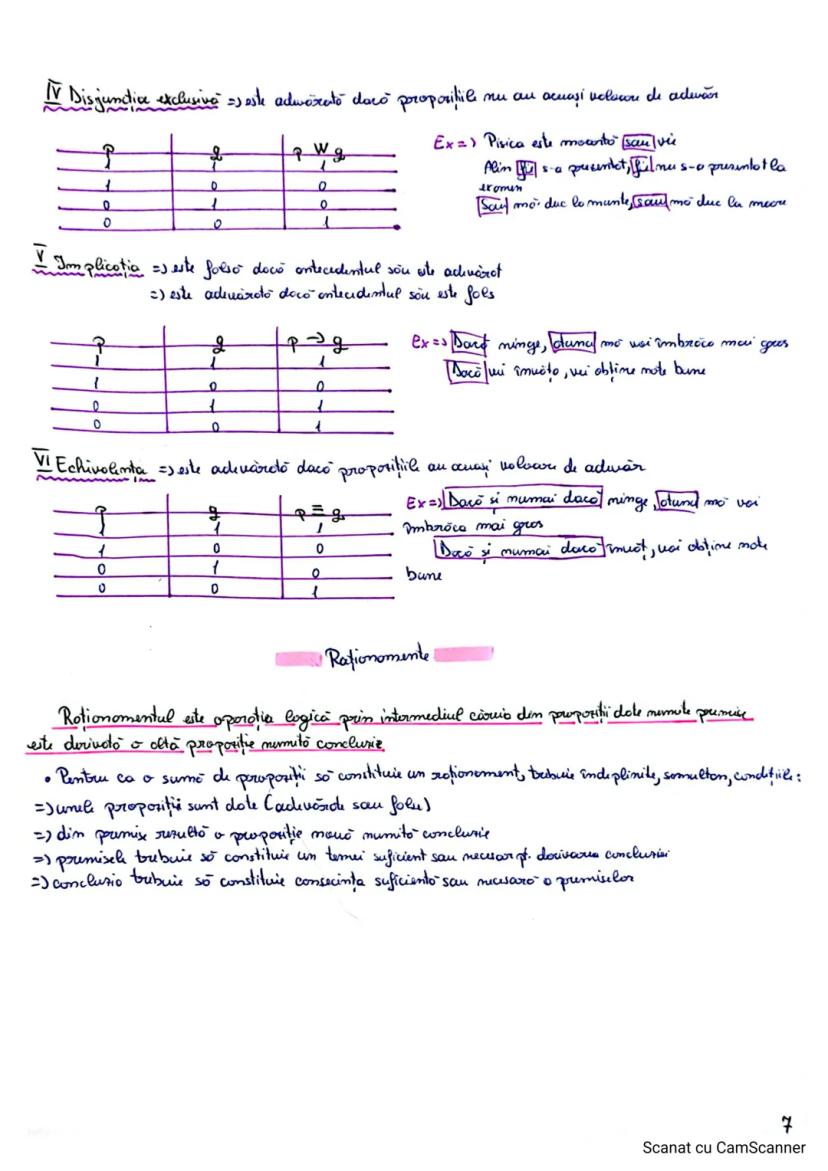 IV Disjuncția exclusivă => este adevărată dacă propozițiile nu au aceeași valoare de adevăr
p q p W q
1 1 1
1 0 0
0 1 0
0 0 1
Ex => Pisica este moartă sau vie
Alin fie s-a prezentat, fie nu s-a prezentat la
examen
Sau mă duc la munte, sau mă duc la mare
V Implicația => este falsă dacă antecedentul său este adevărat
=> este adevărată dacă antecedentul său este fals
p q p → q
1 1 1
1 0 0
0 1 1
0 0 1
Ex => Dacă ninge, atunci mă voi îmbrăca mai gros
Dacă vei învăța, vei obține note bune
VI Echivalența => este adevărată dacă propozițiile au aceeași valoare de adevăr
p q p ≡ q
1 1 1
1 0 0
0 1 0
0 0 1
Ex => Dacă și numai dacă ninge, atunci mă voi
îmbrăca mai gros
Dacă și numai dacă învăț, voi obține note
bune
Raționamente
Raționamentul este operația logică prin intermediul căruia din propoziții date numite premise
este derivată o altă propoziție numită concluzie
• Pentru ca o sumă de propoziții să constituie un raționament, trebuie îndeplinite, simultan, condițiile:
=> unele propoziții sunt date (adevărate sau false)
=> din premise rezultă o propoziție nouă numită concluzie
=> premisele trebuie să constituie un temei suficient sau necesar pt. derivarea concluziei
=> concluzia trebuie să constituie consecința suficientă sau necesară a premiselor
7
Scanat cu CamScanner